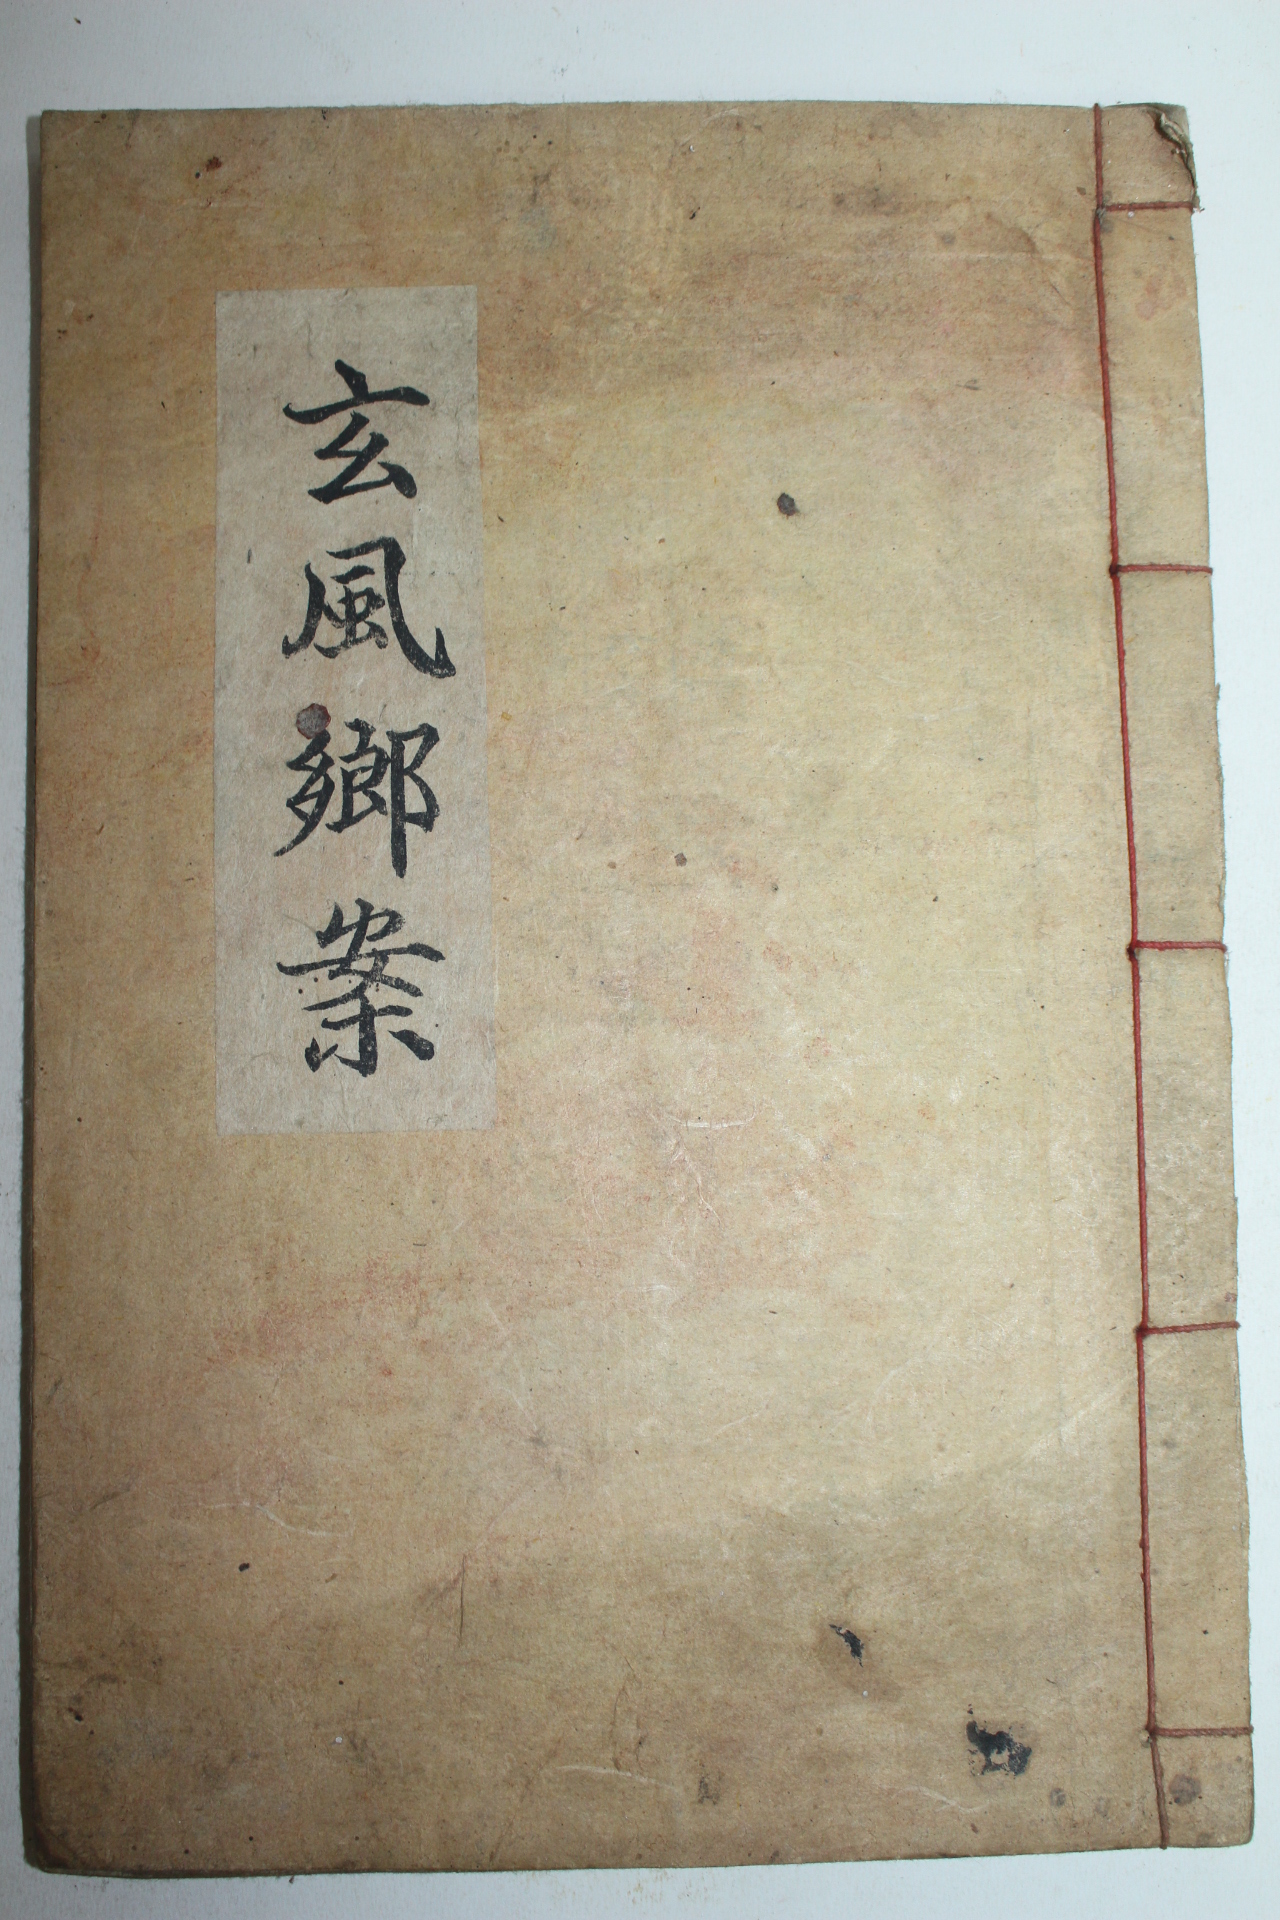 玄風鄉案